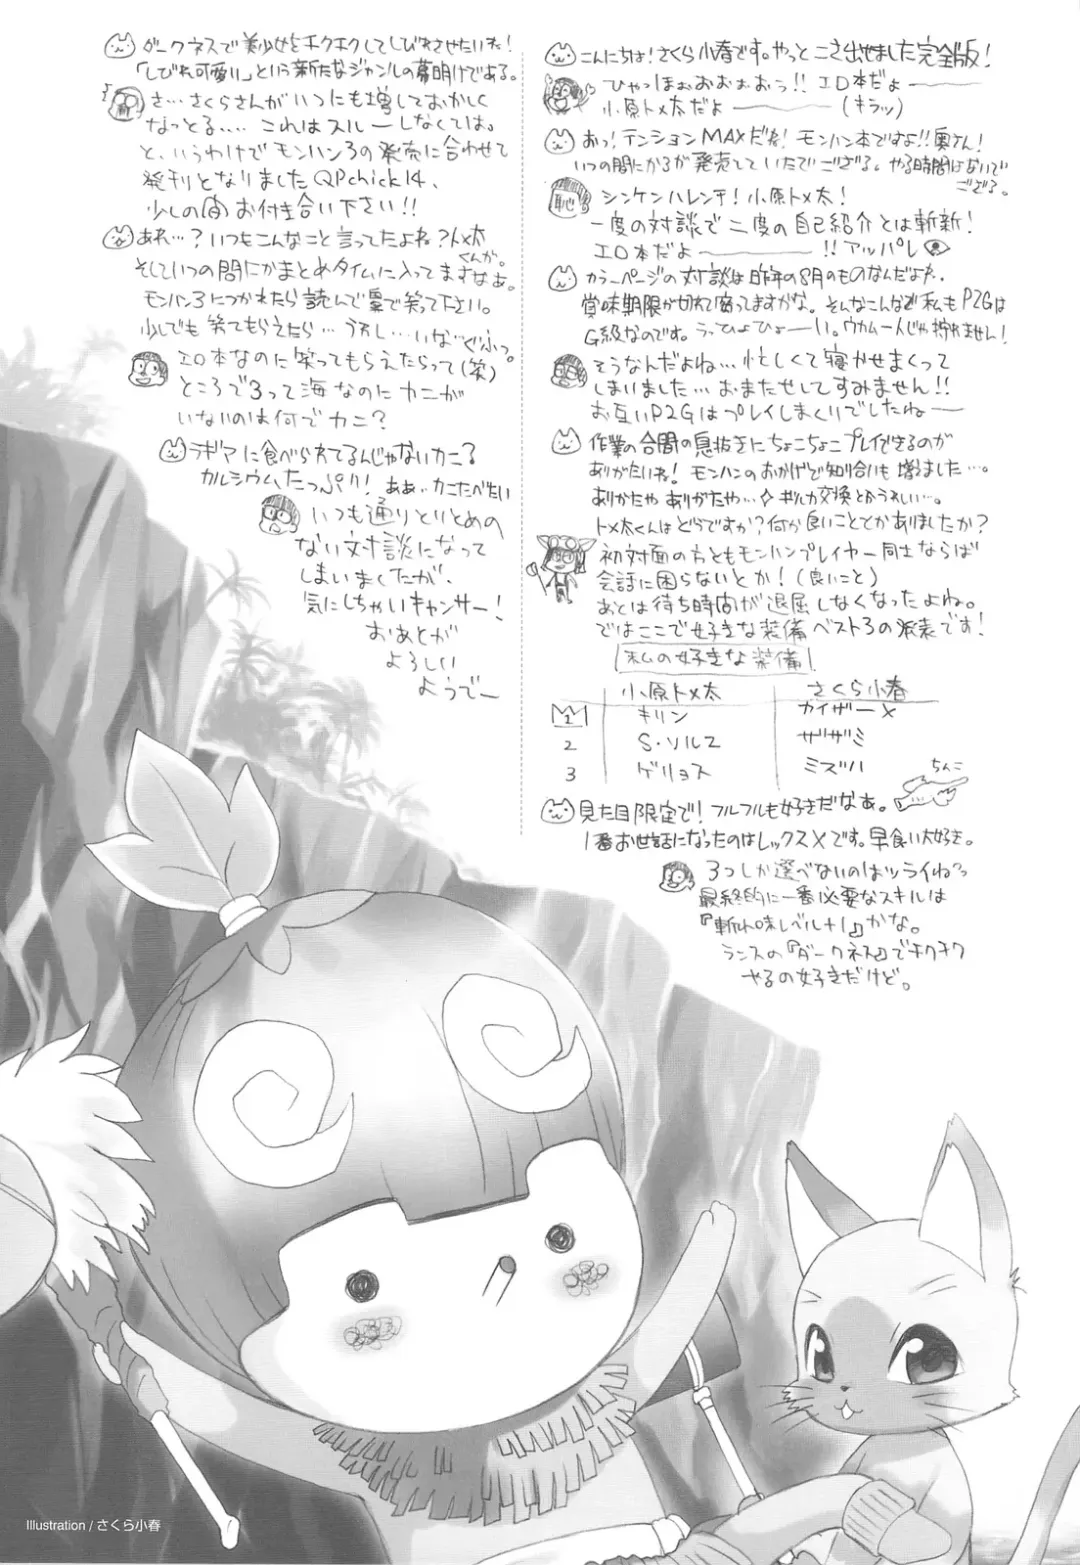 こんにちは!さくら小春です。やっとこさ出せました完全版!
ひゃっほぉおぉぉぉおっ!!エロ本だよ――
小原トメ太だよ―― (キラッ)
おっ!テンションMAXだね!モンハン本ですよ!!奥さん!
いつの間にか3が発売していたでござる。やる時間はないで
ござる。
恥
シンケンハレンチ!小原トメ太!
一度の対談で二度の自己紹介とは斬新!
エロ本だよ――!!アッパレ
カラーページの対談は昨年の8月のものなんだよね..
賞味期限が切れて腐ってますがな。そんなこんなで私もP2Gは
G級なのです。うっひょひょーい。ウカム一人じゃ狩れません!
そうなんだよね…忙しくて寝かせまくって
しまいました…おまたせしてすみません!!
お互いP2Gはプレイしまくりでしたねー
作業の合間の息抜きにちょこちょこプレイできるのが
ありがたいね!モンハンのおかげで知り合いも増ました…。
ありがたや ありがたや…☆ギルカ交換とかうれしい…。
トメ太くんはどうですか?何か良いことでかありましたか?
初対面の方ともモンハンプレイヤー同士ならば
会話に困らないとか!(良いこと)
あとは待ち時間が退屈しなくなったよね。
ではここで好きな装備ベスト3の発表です!
私の好きな装備
小原トメ太 さくら小春
1 キリン カイザーX
2 S・ソルZ ザザミ
3 ゲリョス ミズハ
ちんこ
見た目限定で!フルフルも好きだなぁ。
1番お世話になったのはレックスXです。早食い大好き。
3つしか選べないのはツライねっ
最終的に一番必要なスキルは
『斬れ味レベル+1』かな。
ランスの『ダークネス』でチクチク
やるの好きだけど。
ダークネスで美少女をチクチクしてしびれさせたいね!
「しびれ可愛い」という新たなジャンルの幕明けである。
さ…さくらさんがいつにも増しておかしく
なっとる....これはスルーしなくては。
と、いうわけでモンハン3の発売に合わせて
発刊となりましたQPchick14、
少しの間お付き合い下さい!!
あれ…?いつもこんなこと言ってたよね?トメ太
くんが。
そしていつの間にかまとめタイムに入ってますなぁ。
モンハン3につかれたら読んで皇で笑って下さい。
少しでも笑てもらえたら…うれし…いな…ぐふっ。
エロ本なのに笑ってもらえたらって(笑)
ところで3って海なのにカニが
いないのは何でカニ?
ラギアに食べられてるんじゃないカニ?
カルシウムたっぷり!ああ..カニたべたい
いつも通りとりとめの
ない対談になって
しまいましたが、
気にしちゃいキャンサー!
おあとが
よろしい
ようでー
Illustration / さくら小春